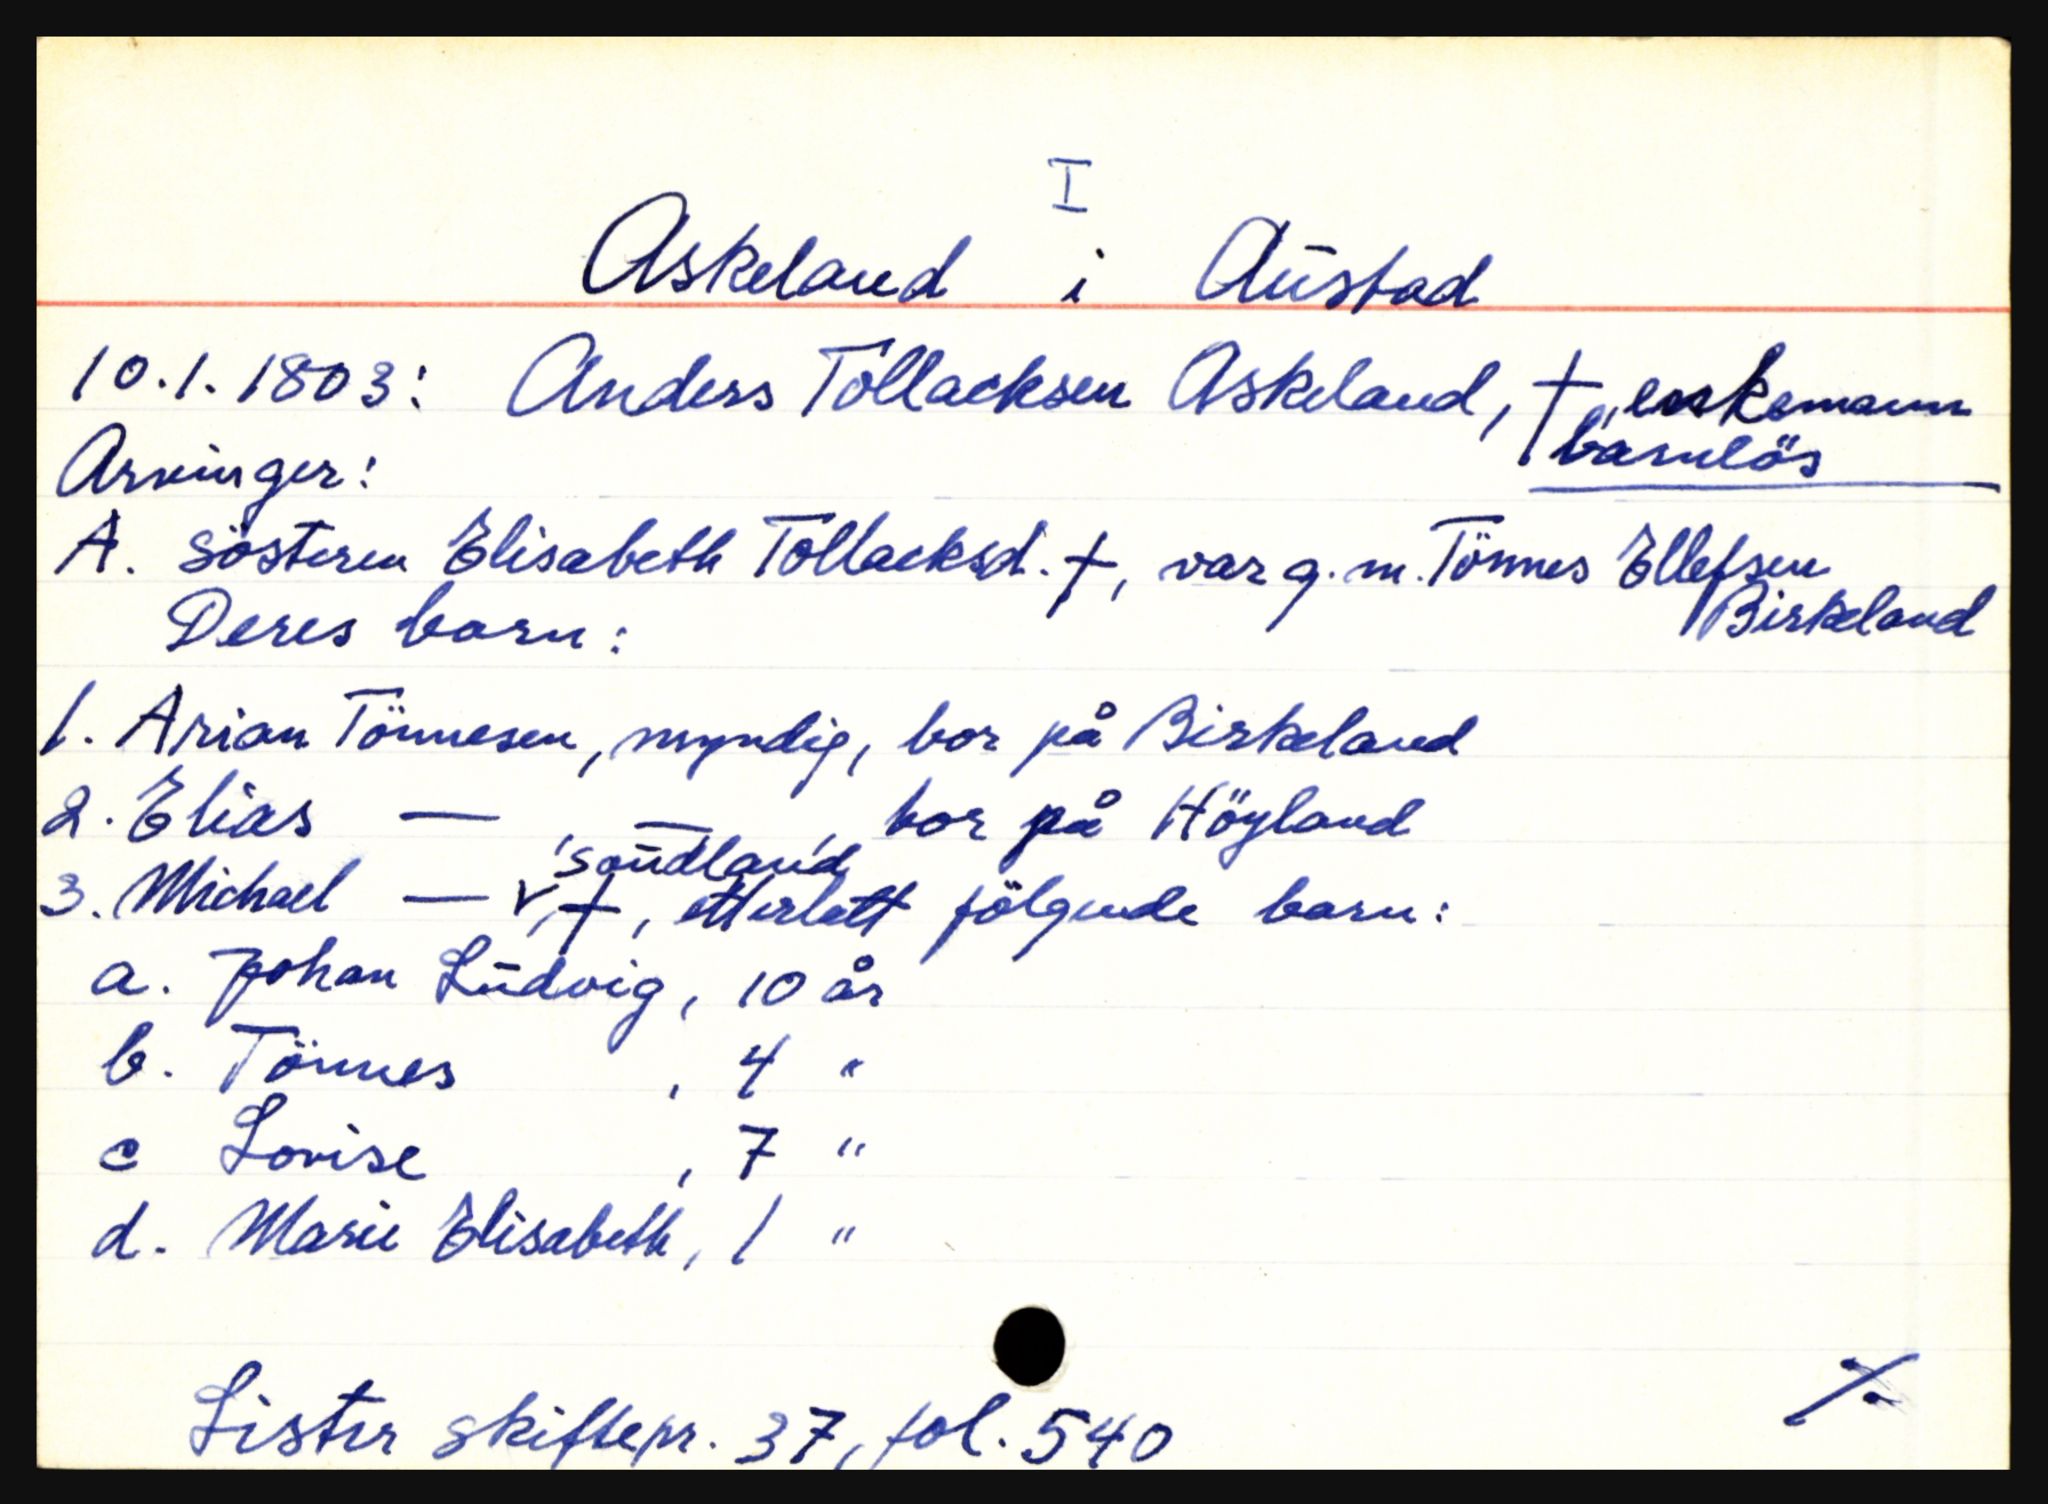 I
Askeland i Austad
10.1.1803: Anders Tollacksen Askeland, † enkemann
barnlös
Arvinger:
A. Sösteren Elisabeth Tollacksd. †, var g. m. Tönnes Ellefsen
Birkeland
Deres barn:
1. Arian Tönnesen, myndig, bor på Birkeland
2. Elias — , — , bor på Höyland
Saudland
3. Michael — v, †, etterlatt fölgende barn:
a. Johan Ludvig, 10 år
b. Tönnes , 4 "
c Lovise , 7 "
d. Marie Elisabeth, 1 "
Lister skiftepr. 37, fol. 540
./.